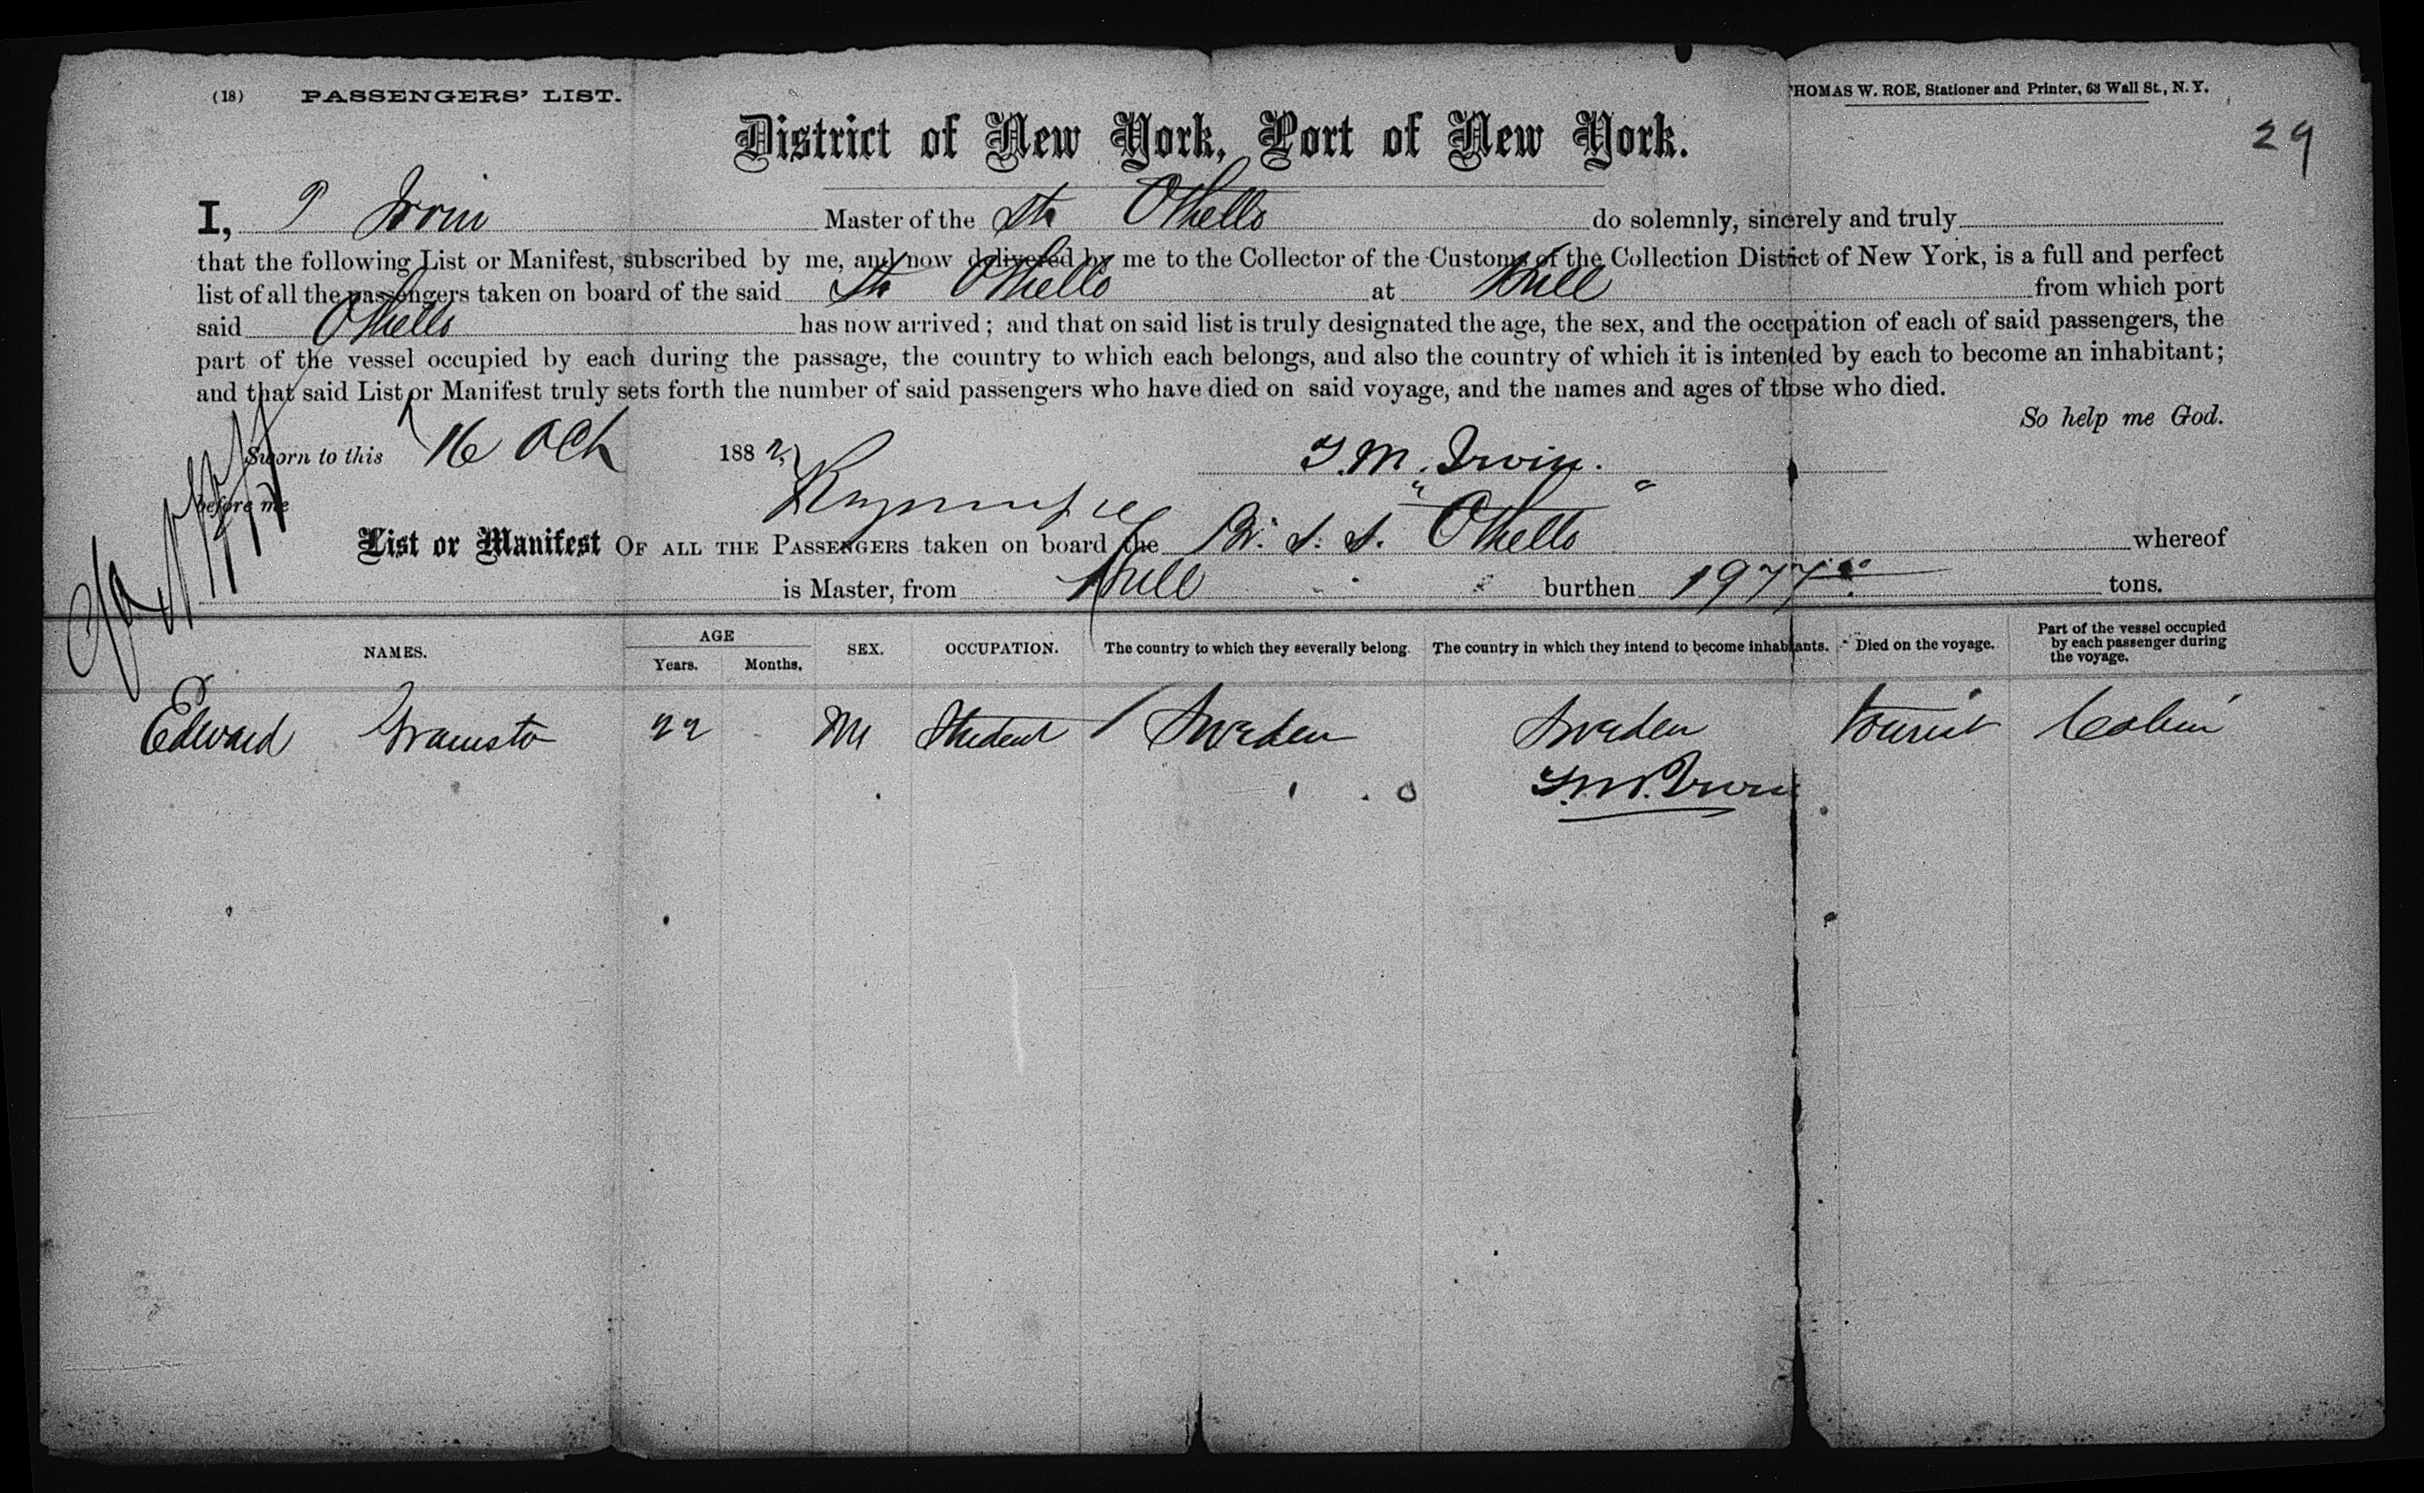 (18) PASSENGERS' LIST.
THOMAS W. ROE, Stationer and Printer, 63 Wall St., N. Y.
29
District of New York, Port of New York.
I, Irvin Master of the Str Othello do solemnly, sincerely and truly
that the following List or Manifest, subscribed by me, and now delivered by me to the Collector of the Customs of the Collection District of New York, is a full and perfect
list of all the passengers taken on board of the said Str Othello at Hull from which port
said Othello has now arrived; and that on said list is truly designated the age, the sex, and the occupation of each of said passengers, the
part of the vessel occupied by each during the passage, the country to which each belongs, and also the country of which it is intented by each to become an inhabitant;
and that said List or Manifest truly sets forth the number of said passengers who have died on said voyage, and the names and ages of those who died.
So help me God.
Sworn to this 16 Oct 1882 
before me
List or Manifest OF ALL THE PASSENGERS taken on board the Br. S. S. "Othello" whereof
is Master, from Hull burthen 1977 tons.
NAMES. AGE Years. Months. SEX. OCCUPATION. The country to which they severally belong. The country in which they intend to become inhabitants. Died on the voyage. Part of the vessel occupied by each passenger during the voyage.
Edward 22 M Student Sweden Sweden tourist Cabin